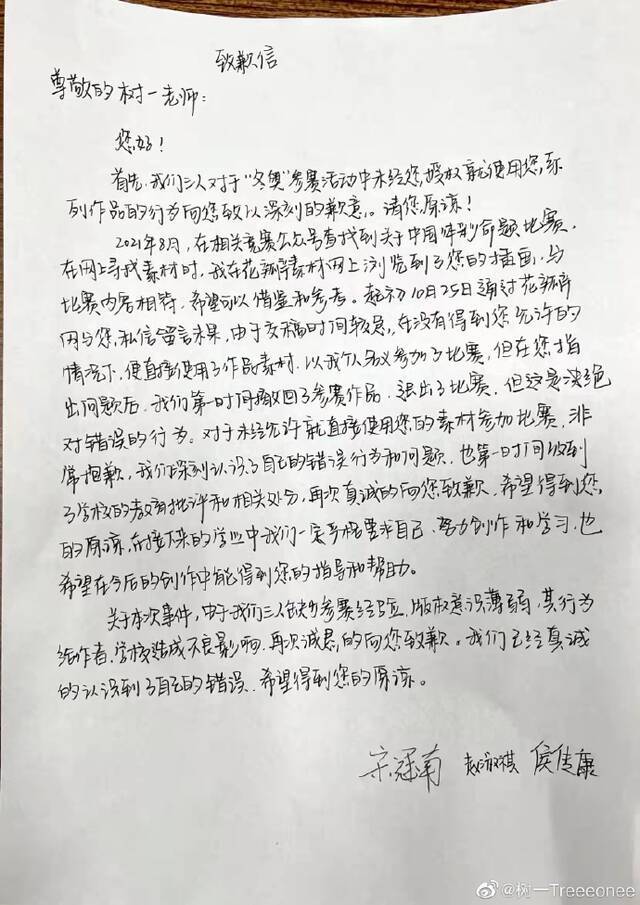 致歉信
尊敬的树一老师：
您好！
首先，我们三人对于“冬奥”参赛活动中未经您授权就使用您系
列作品的行为向您致以深刻的歉意。请您原谅！
2021年8月，在相关竞赛公众号查找到关于中国 命题比赛，
在网上寻找素材时，我在花瓣等素材网上浏览到了您的插画，与
比赛内容相符，希望可以借鉴和参考。起初10月25日通过花瓣
网与您私信留言未果，由于交稿时间较急，在没有得到您允许的
情况下，便直接使用了作品素材，以我个人名义参加了比赛，但在您指
出问题后，我们第一时间撤回了参赛作品，退出了比赛，但这是决绝
对错误的行为。对于未经允许就直接使用您的素材参加比赛，非
常抱歉，我们深刻认识了自己的错误行为和问题，也第一时间收到
了学校的教育批评和相关处分，再次真诚的向您致歉，希望得到您
的原谅，在接下来的学业中我们一定严格要求自己，努力创作和学习，也
希望在今后的创作中能得到您的指导和帮助。
关于本次事件，由于我们三人缺少参赛经验，版权意识薄弱，其行为
给作者、学校造成不良影响，再次诚恳的向您致歉。我们已经真诚
的认识到了自己的错误，希望得到您的原谅。
宋冠南 赵 祺 侯佳康
@树一Treeeonee